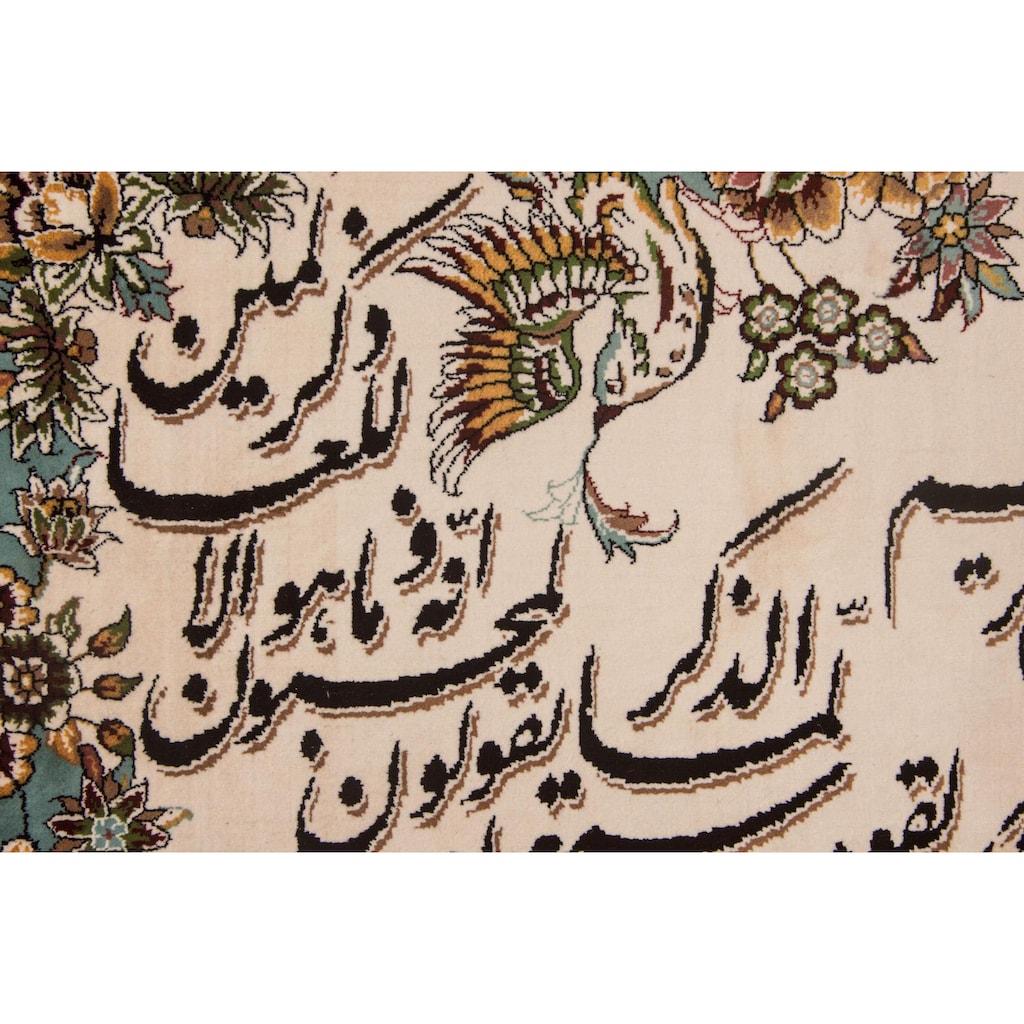 لما سمعوا الذّكر
و يقولون
انّه لمجنون
و ما هو الا
ذكر للعالمين